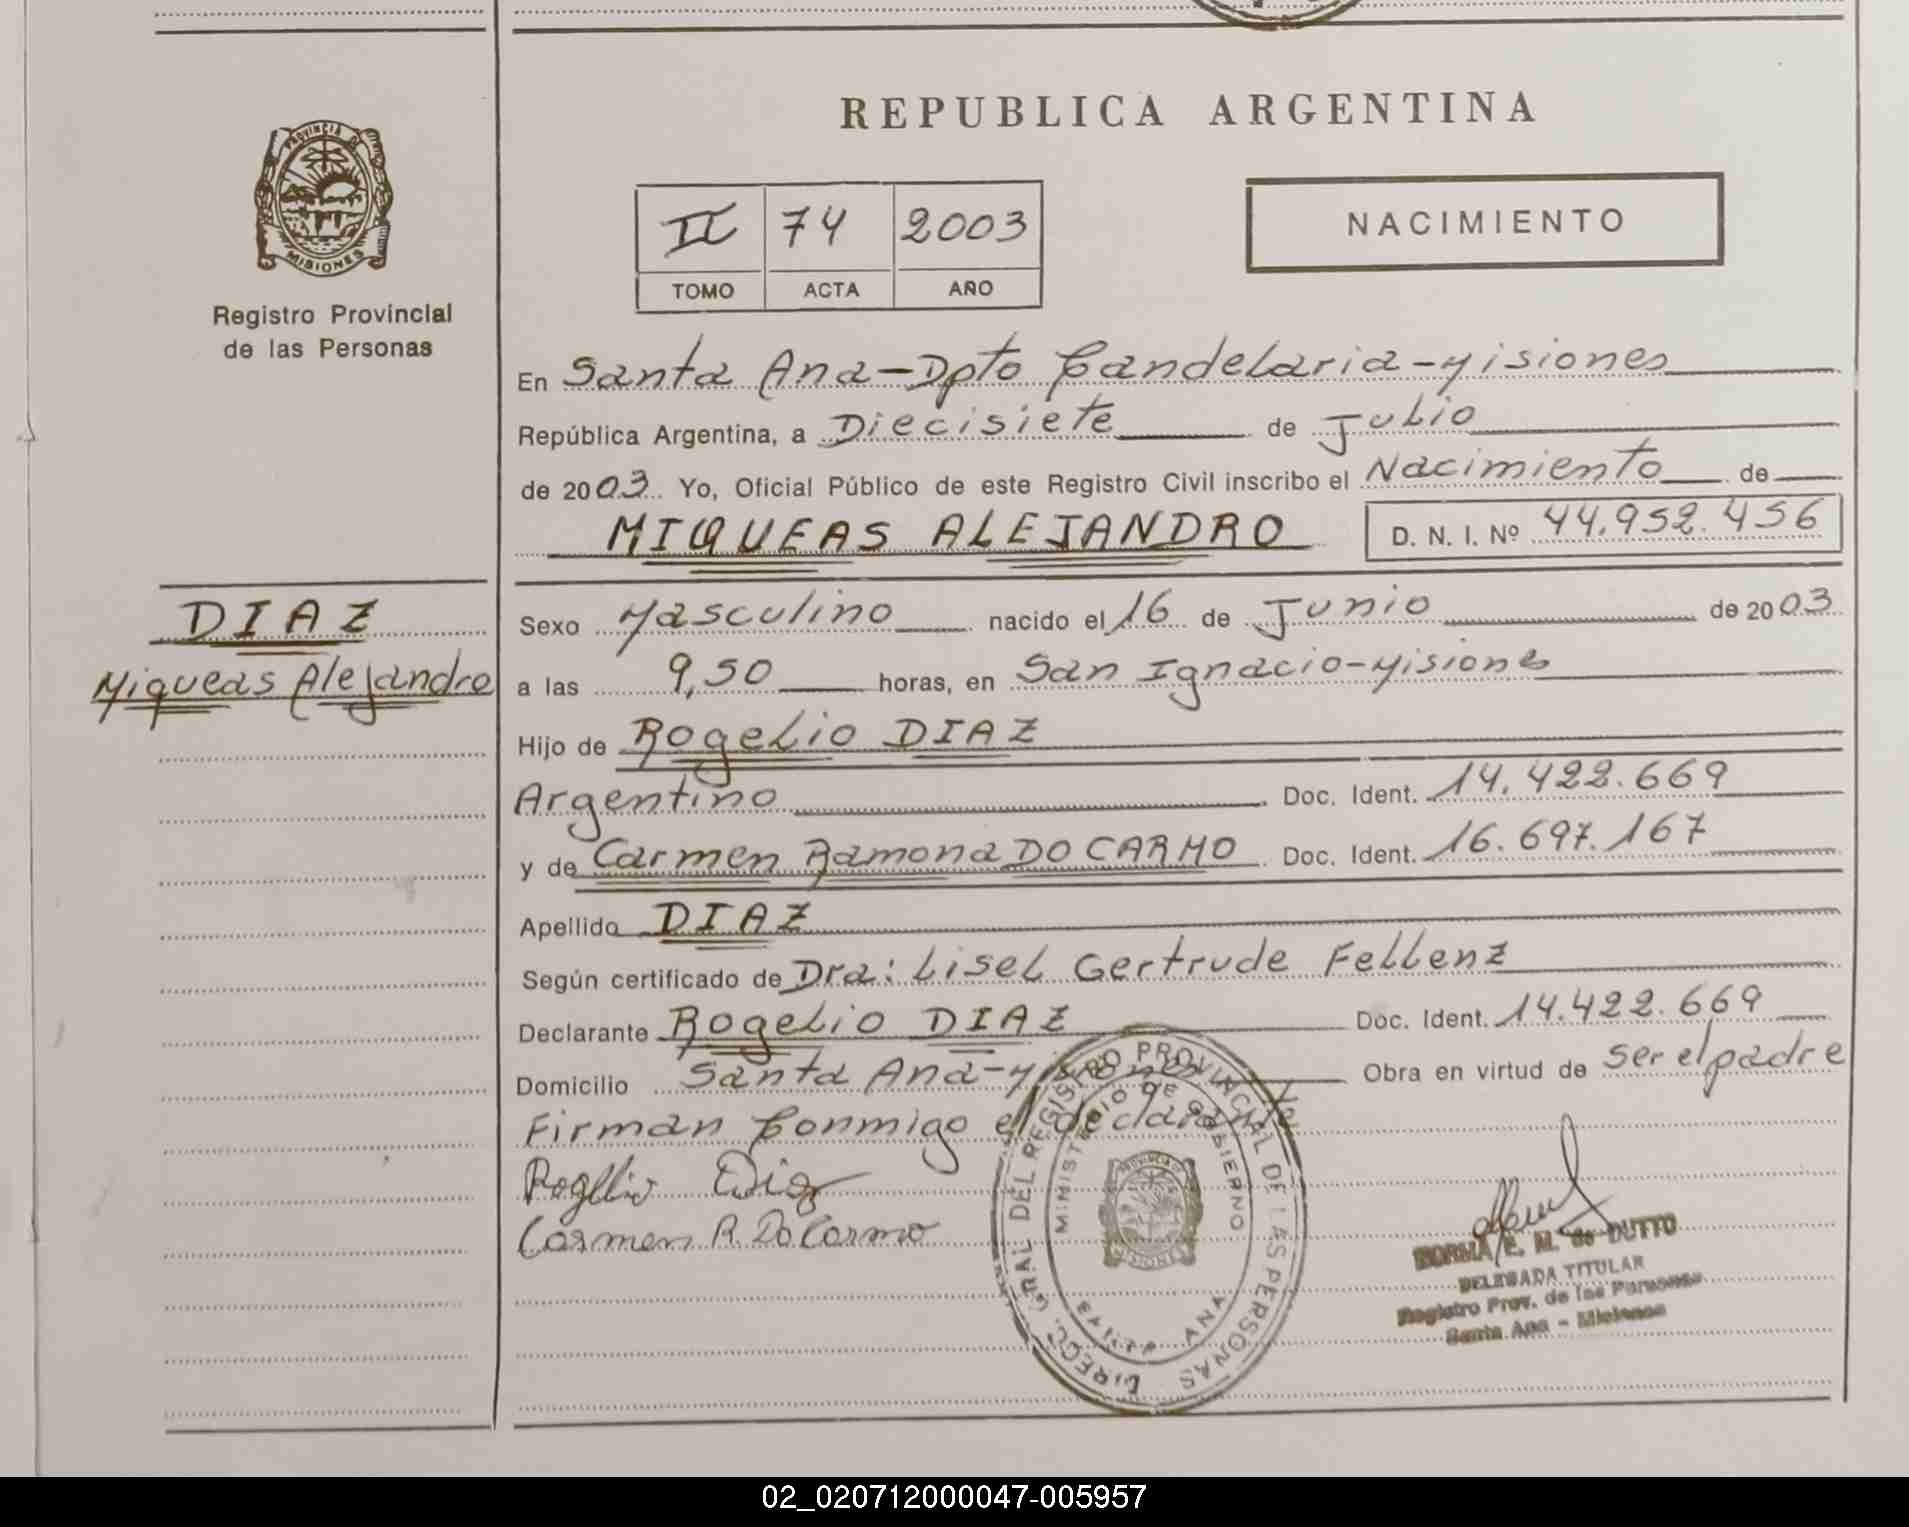 REPUBLICA ARGENTINA
PROVINCIA DE MISIONES
Registro Provincial
de las Personas
II 74 2003
TOMO ACTA AÑO
NACIMIENTO
En Santa Ana-Dpto Candelaria-Misiones
República Argentina, a Diecisiete de Julio
de 2003. Yo, Oficial Público de este Registro Civil inscribo el Nacimiento de
MIQUEAS ALEJANDRO D. N. I. Nº 44.952.456
DIAZ
Miqueas Alejandro
Sexo Masculino nacido el 16 de Junio de 2003
a las 9,50 horas, en San Ignacio-Misiones
Hijo de Rogelio DIAZ
Argentino Doc. Ident. 14.422.669
y de Carmen Ramona DO CARMO Doc. Ident. 16.697.167
Apellido DIAZ
Según certificado de Dra: Lisel Gertrude Fellenz
Declarante Rogelio DIAZ Doc. Ident. 14.422.669
Domicilio Santa Ana-Misiones Obra en virtud de ser el padre
Firman Conmigo el declarante
Rogelio Diaz
Carmen R. Do Carmo
DIRECC. GRAL DEL REGISTRO PROVINCIAL DE LAS PERSONAS
MINISTERIO DE GOBIERNO
PROVINCIA DE MISIONES
SANTA ANA
NORMA E. M. de DUTTO
DELEGADA TITULAR
Registro Prov. de las Personas
Santa Ana - Misiones
02_020712000047-005957